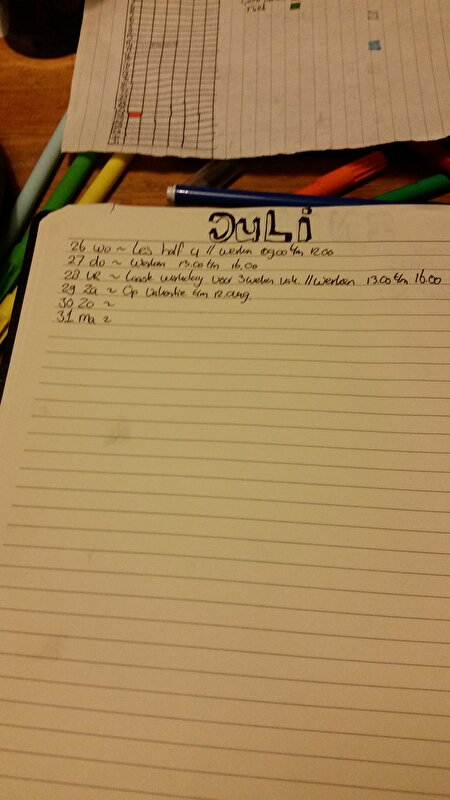 JULI
26 wo ~ Les half 4 // werken 09.00 t/m 12.00
27 do ~ Werken 13.00 t/m 16.00
28 VR ~ Laatste werkdag voor 3 weken vak. // werken 13.00 t/m 16.00
29 Za ~ Op vakantie t/m 12. aug.
30 Zo ~
31 ma ~